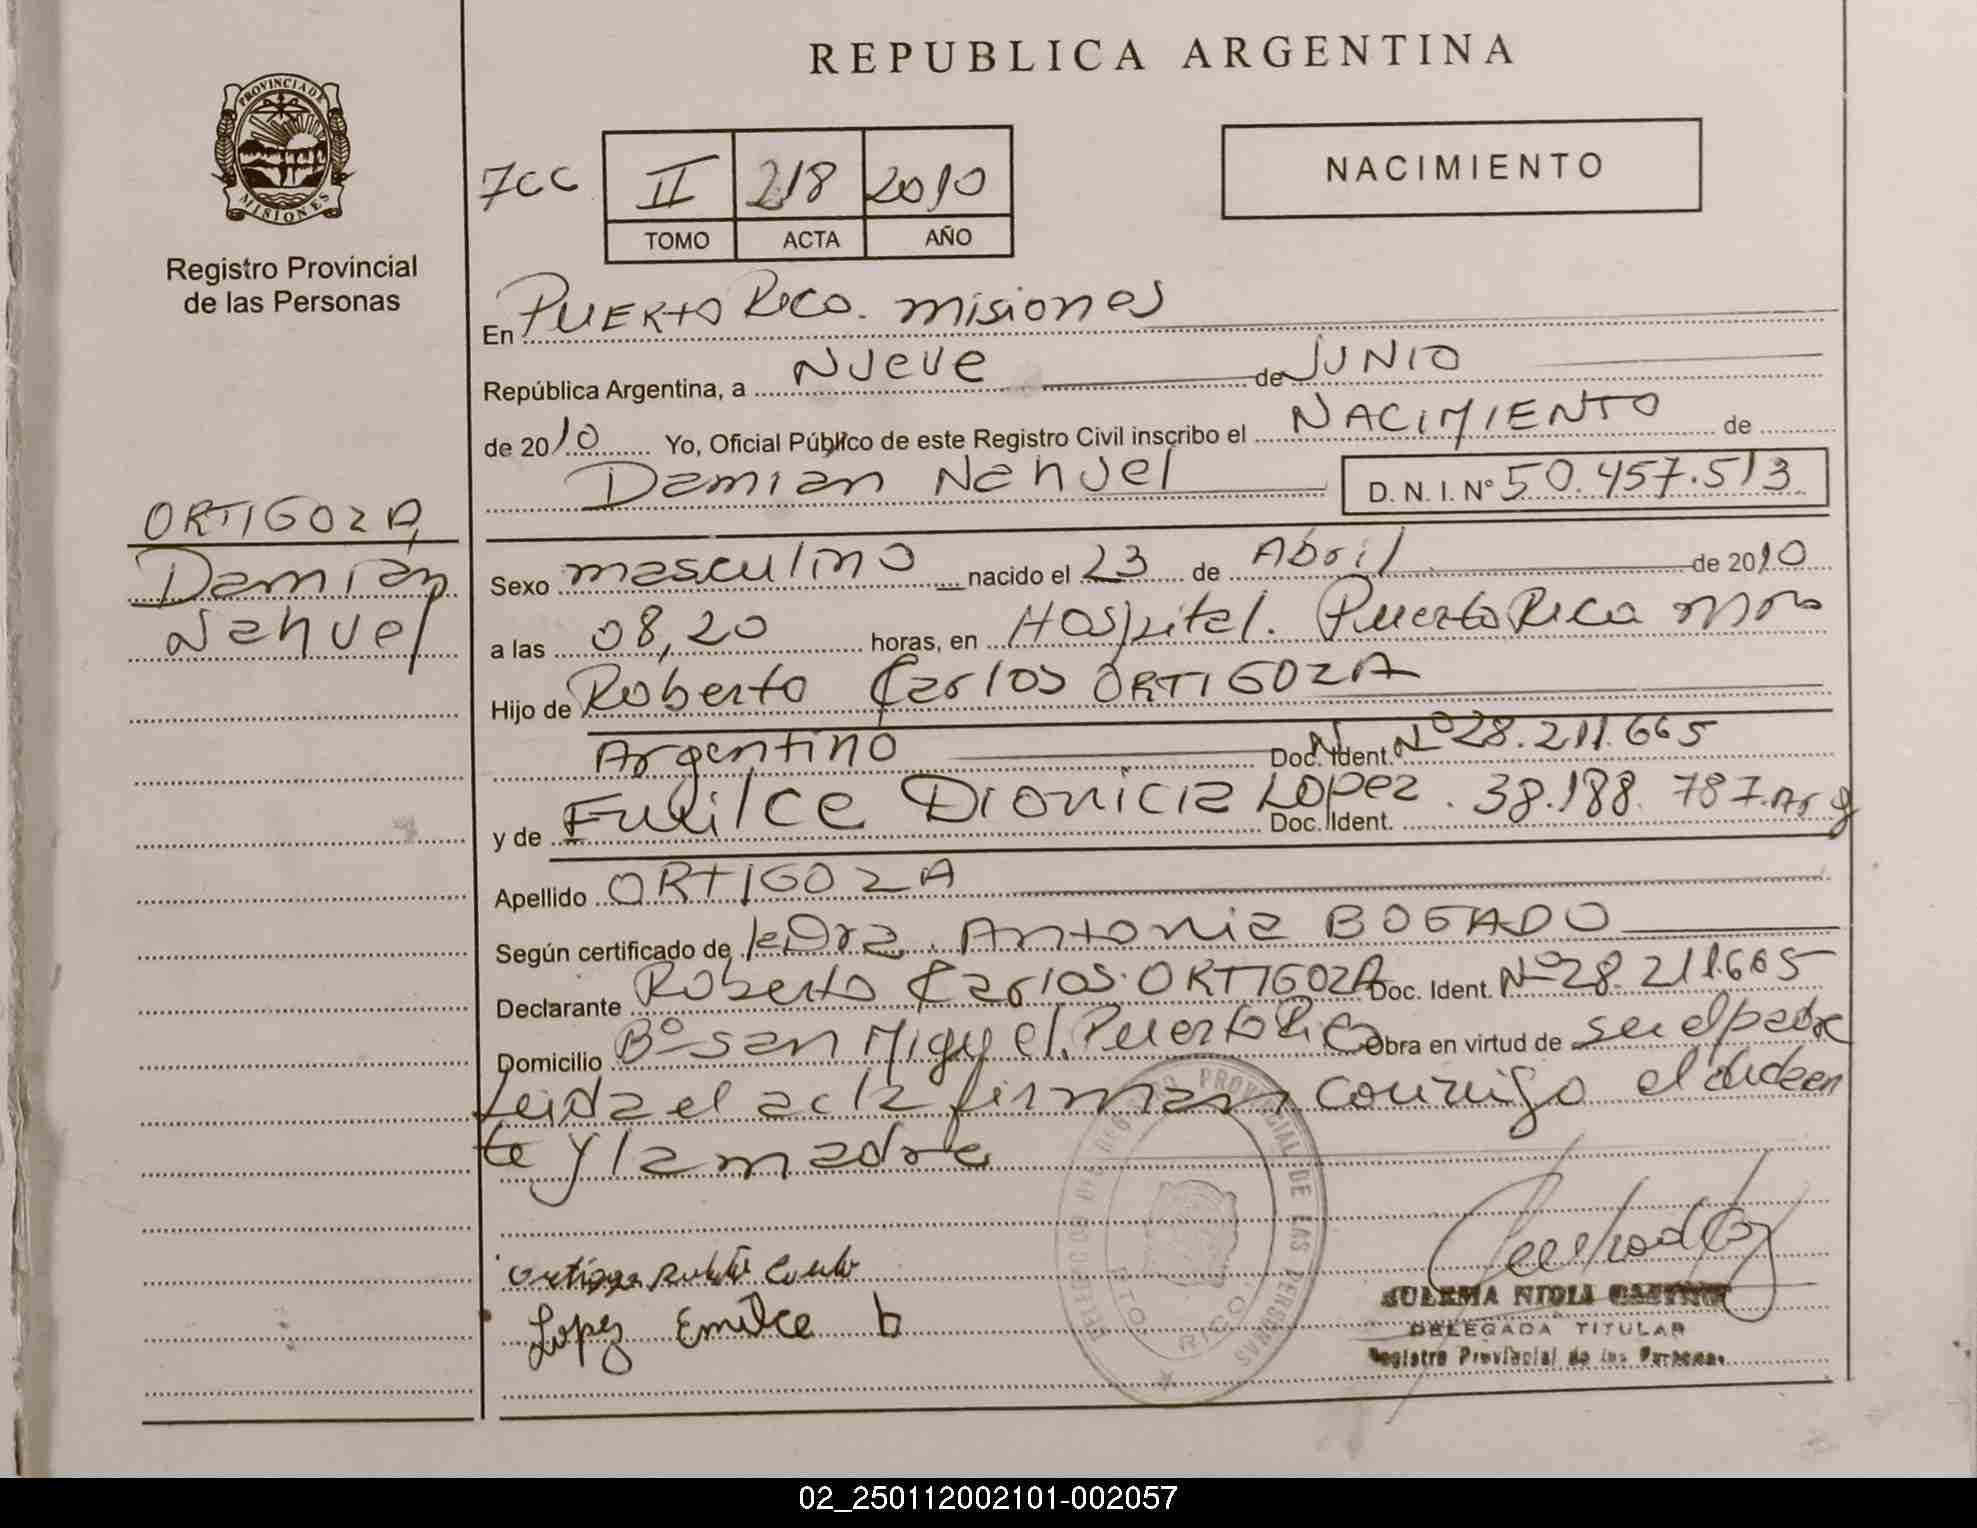 REPUBLICA ARGENTINA
PROVINCIA DE
MISIONES
Registro Provincial
de las Personas
7CC
II 218 2010
TOMO ACTA AÑO
NACIMIENTO
En PUERTO Rico. misiones
República Argentina, a Nueve de JUNIO
de 2010 Yo, Oficial Público de este Registro Civil inscribo el NACIMIENTO de
Damian Nahuel D. N. I. Nº 50.457.513
ORTIGOZA
Damian
Nahuel
Sexo masculino nacido el 23 de Abril de 2010
a las 08,20 horas, en Hospital. Puerto Rico
Hijo de Roberto Carlos ORTIGOZA
Argentino Doc. Ident. Nº 28.211.665
y de Dionicia Lopez Doc. Ident. 38.188.787. Arg
Apellido ORTIGOZA
Según certificado de la Dra. Antonia BOGADO
Declarante Roberto Carlos. ORTIGOZA Doc. Ident. Nº 28.211.665
Domicilio Bº San Miguel. Puerto Rico Obra en virtud de ser el padre
Leida el acta firman conmigo el
te y la madre
DELEGACION DEL REGISTRO PROVINCIAL DE LAS PERSONAS
PTO. RICO
Lopez Emilce D
DELEGADA TITULAR
Registro Provincial de las Personas
02_250112002101-002057